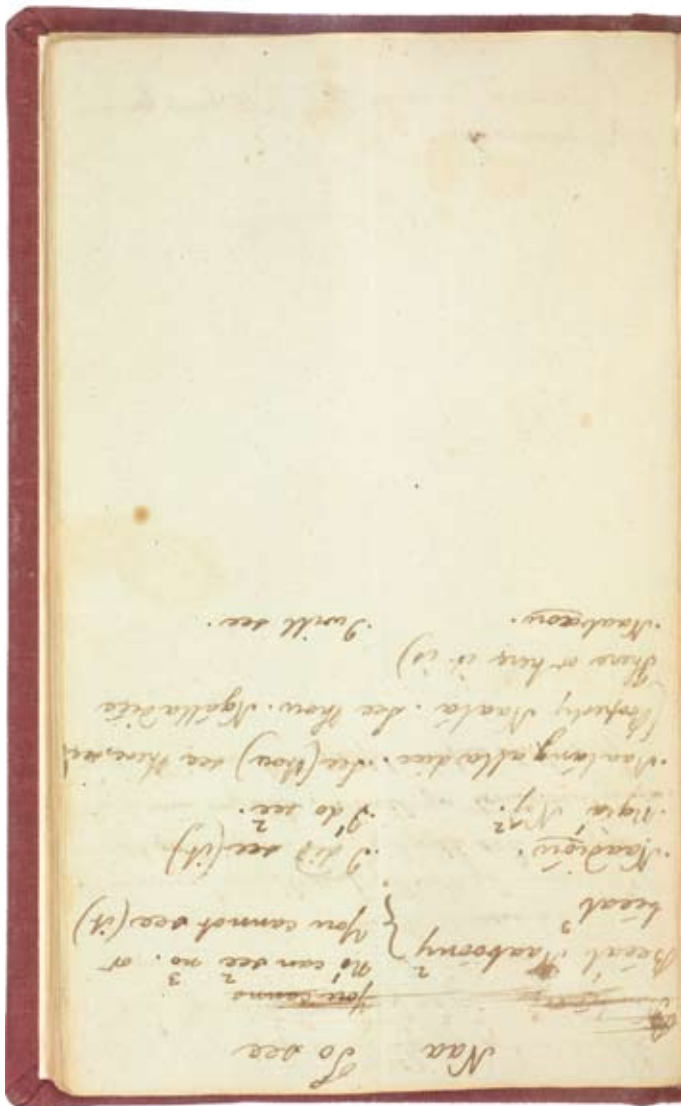 Naa To see
You canno
Beeál Naabaóny 2 no 1 can see 2 no. 3 or
beeal 3 You cannot see (it)
Naadióu. I did see (it)
Ngia Ní. I 1 do see. 2
Naalángalladiee. See (thou) see there
Properly Naalá. See thou. Ngálladiéé
There or here it is)
Naabaou. I will see.